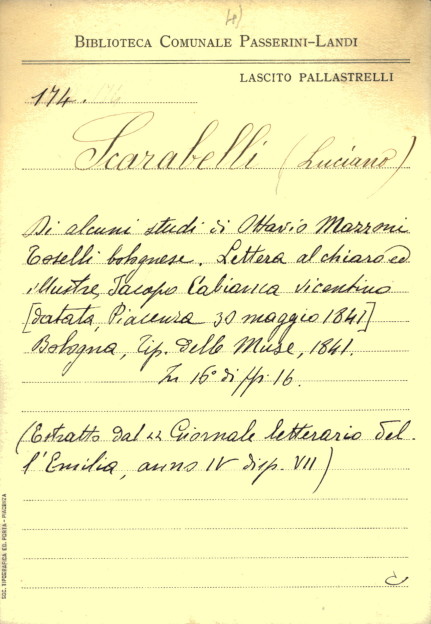 BIBLIOTECA COMUNALE PASSERINI-LANDI
LASCITO PALLASTRELLI
174.
Scarabelli (Luciano)
Di alcuni studi di Ottavio Mazzoni
Toselli bolognese. Lettera al chiaro ed
illustre Jacopo Cabianca vicentino
[datata, Piacenza 30 maggio 1841]
Bologna, Tip. delle Muse, 1841.
In 16° di pp. 16.
(Estratto dal "Giornale letterario del-
l'Emilia, anno IV disp. VII)
SOC. TIPOGRAFICA ED. PORTA - PIACENZA